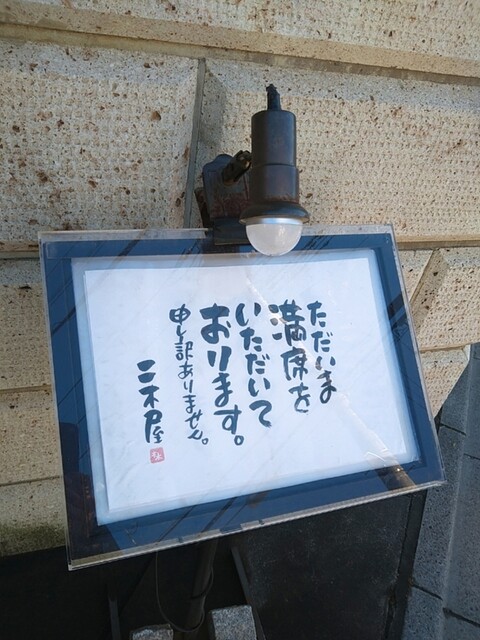 ただいま
満席を
いただいて
おります。
申し訳ありません。
二木屋